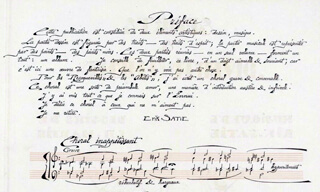 Préface
Cette publication est constituée de deux éléments artistiques : dessin, musique.
La partie dessin est figurée par des traits — des traits d'esprit ; la partie musicale est représentée
par des points — des points noirs. Ces deux parties réunies — en un seul volume — forment un
tout : un album. Je conseille de feuilleter, ce livre, d'un doigt aimable & souriant, car
c'est ici une œuvre de fantaisie. Que l'on n'y voie pas autre chose.
Pour les "Recroquevillés" & les "Abêtis", j'ai écrit un choral grave & convenable.
Ce choral est une sorte de préambule amer, une manière d'introduction austère & infrivole.
J'y ai mis tout ce que je connais sur l'Ennui.
Je dédie ce choral à ceux qui ne m'aiment pas.
Je me retire.
ERIK SATIE
Choral inappétissant
Grave
rébarbatif & hargneux